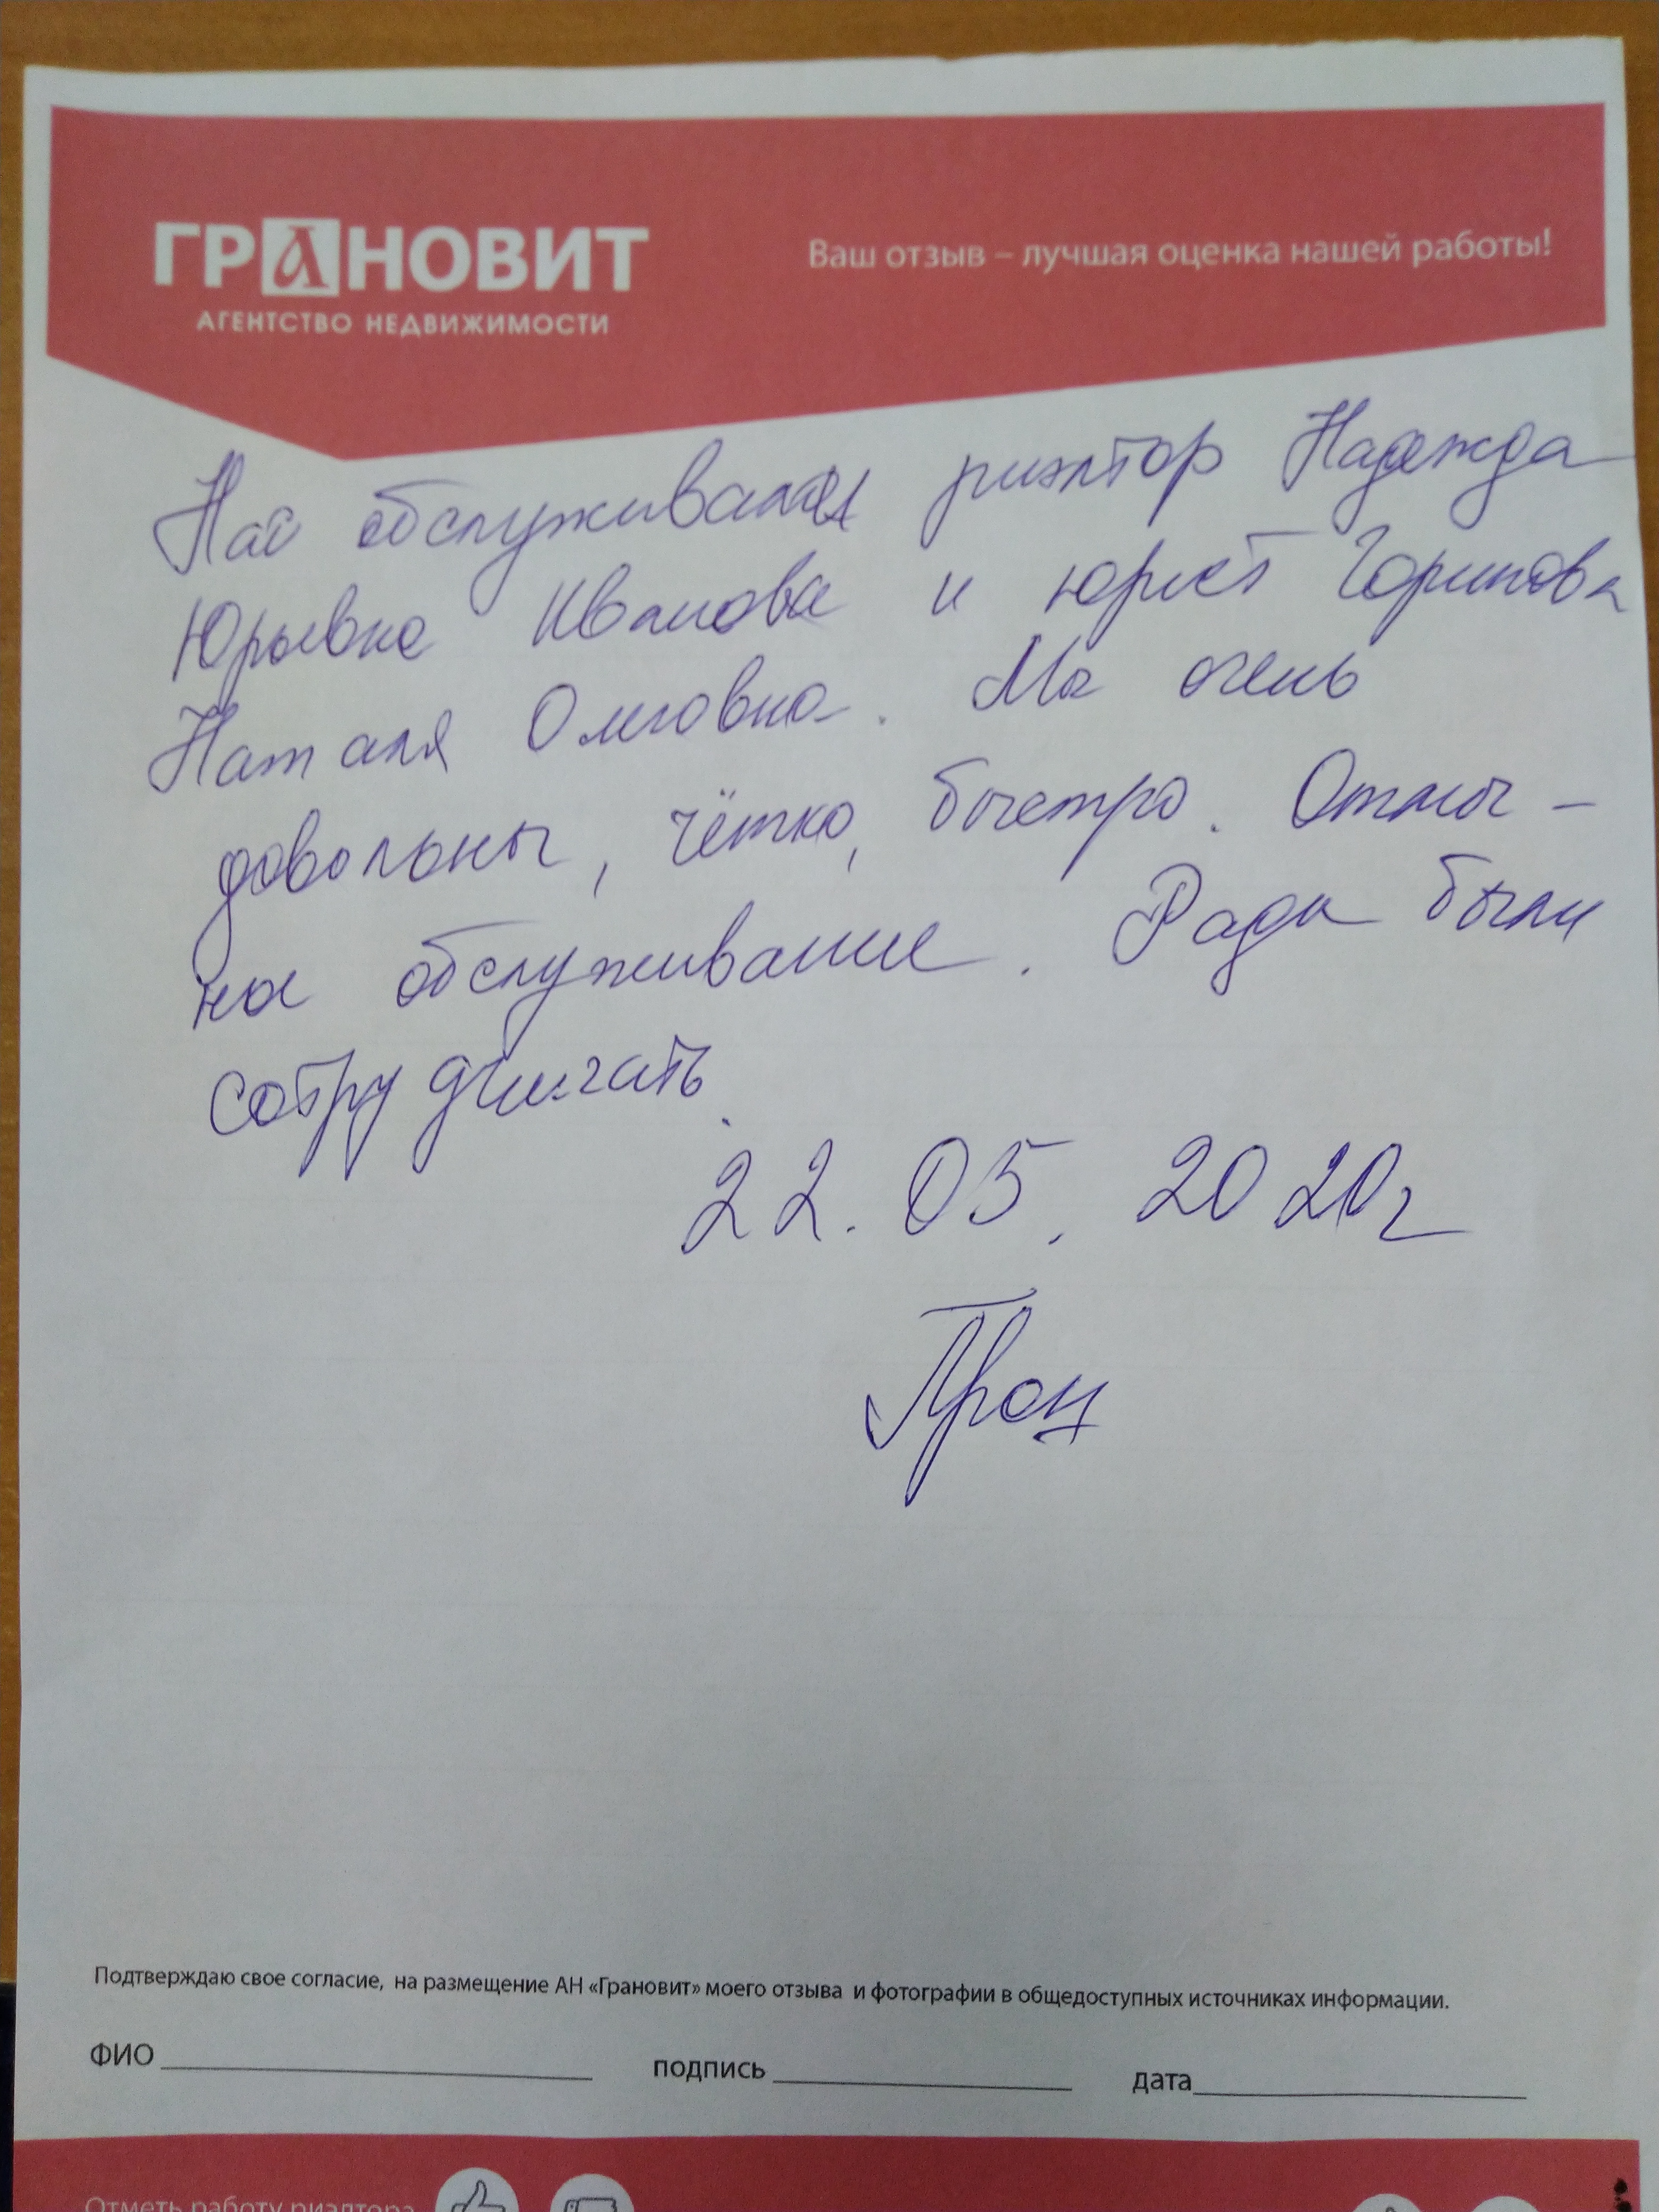 ГРАНОВИТ
АГЕНТСТВО НЕДВИЖИМОСТИ
Ваш отзыв – лучшая оценка нашей работы!
Нас обслуживала риэлтор Надежда
Юрьевна Иванова и юрист Горинова
Наталя Олеговна. Мы очень
довольны, чётко, быстро. Отлич-
ное обслуживание. Рады были
сотрудничать.
22.05.2020г
Подтверждаю свое согласие, на размещение АН «Грановит» моего отзыва и фотографии в общедоступных источниках информации.
ФИО подпись дата
Отметь работу риэлтора